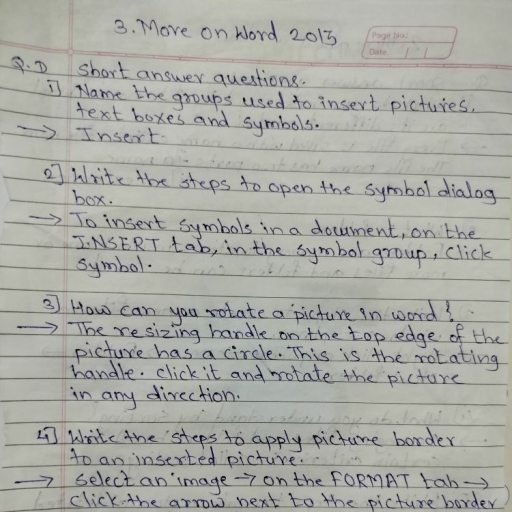 3. More on Word 2013
Page No.
Date
Q.D Short answer questions.
1] Name the groups used to insert pictures,
text boxes and symbols.
→ Insert.
2] Write the steps to open the symbol dialog
box.
→ To insert symbols in a document, on the
INSERT tab, in the symbol group, click
symbol.
3] How can you rotate a picture in word?
→ The resizing handle on the top edge of the
picture has a circle. This is the rotating
handle. click it and rotate the picture
in any direction.
4] Write the steps to apply picture border
to an inserted picture.
→ select an image → on the FORMAT tab →
click the arrow next to the picture border